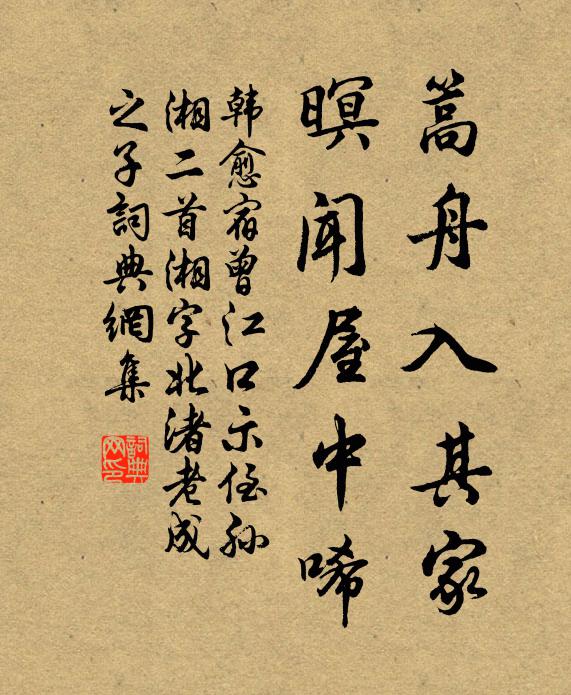 篙舟入其家
暝闻屋中唏
韩愈宿曾江口示侄孙
湘二首湘字北渚老成
之子詞典網集
詞典网印